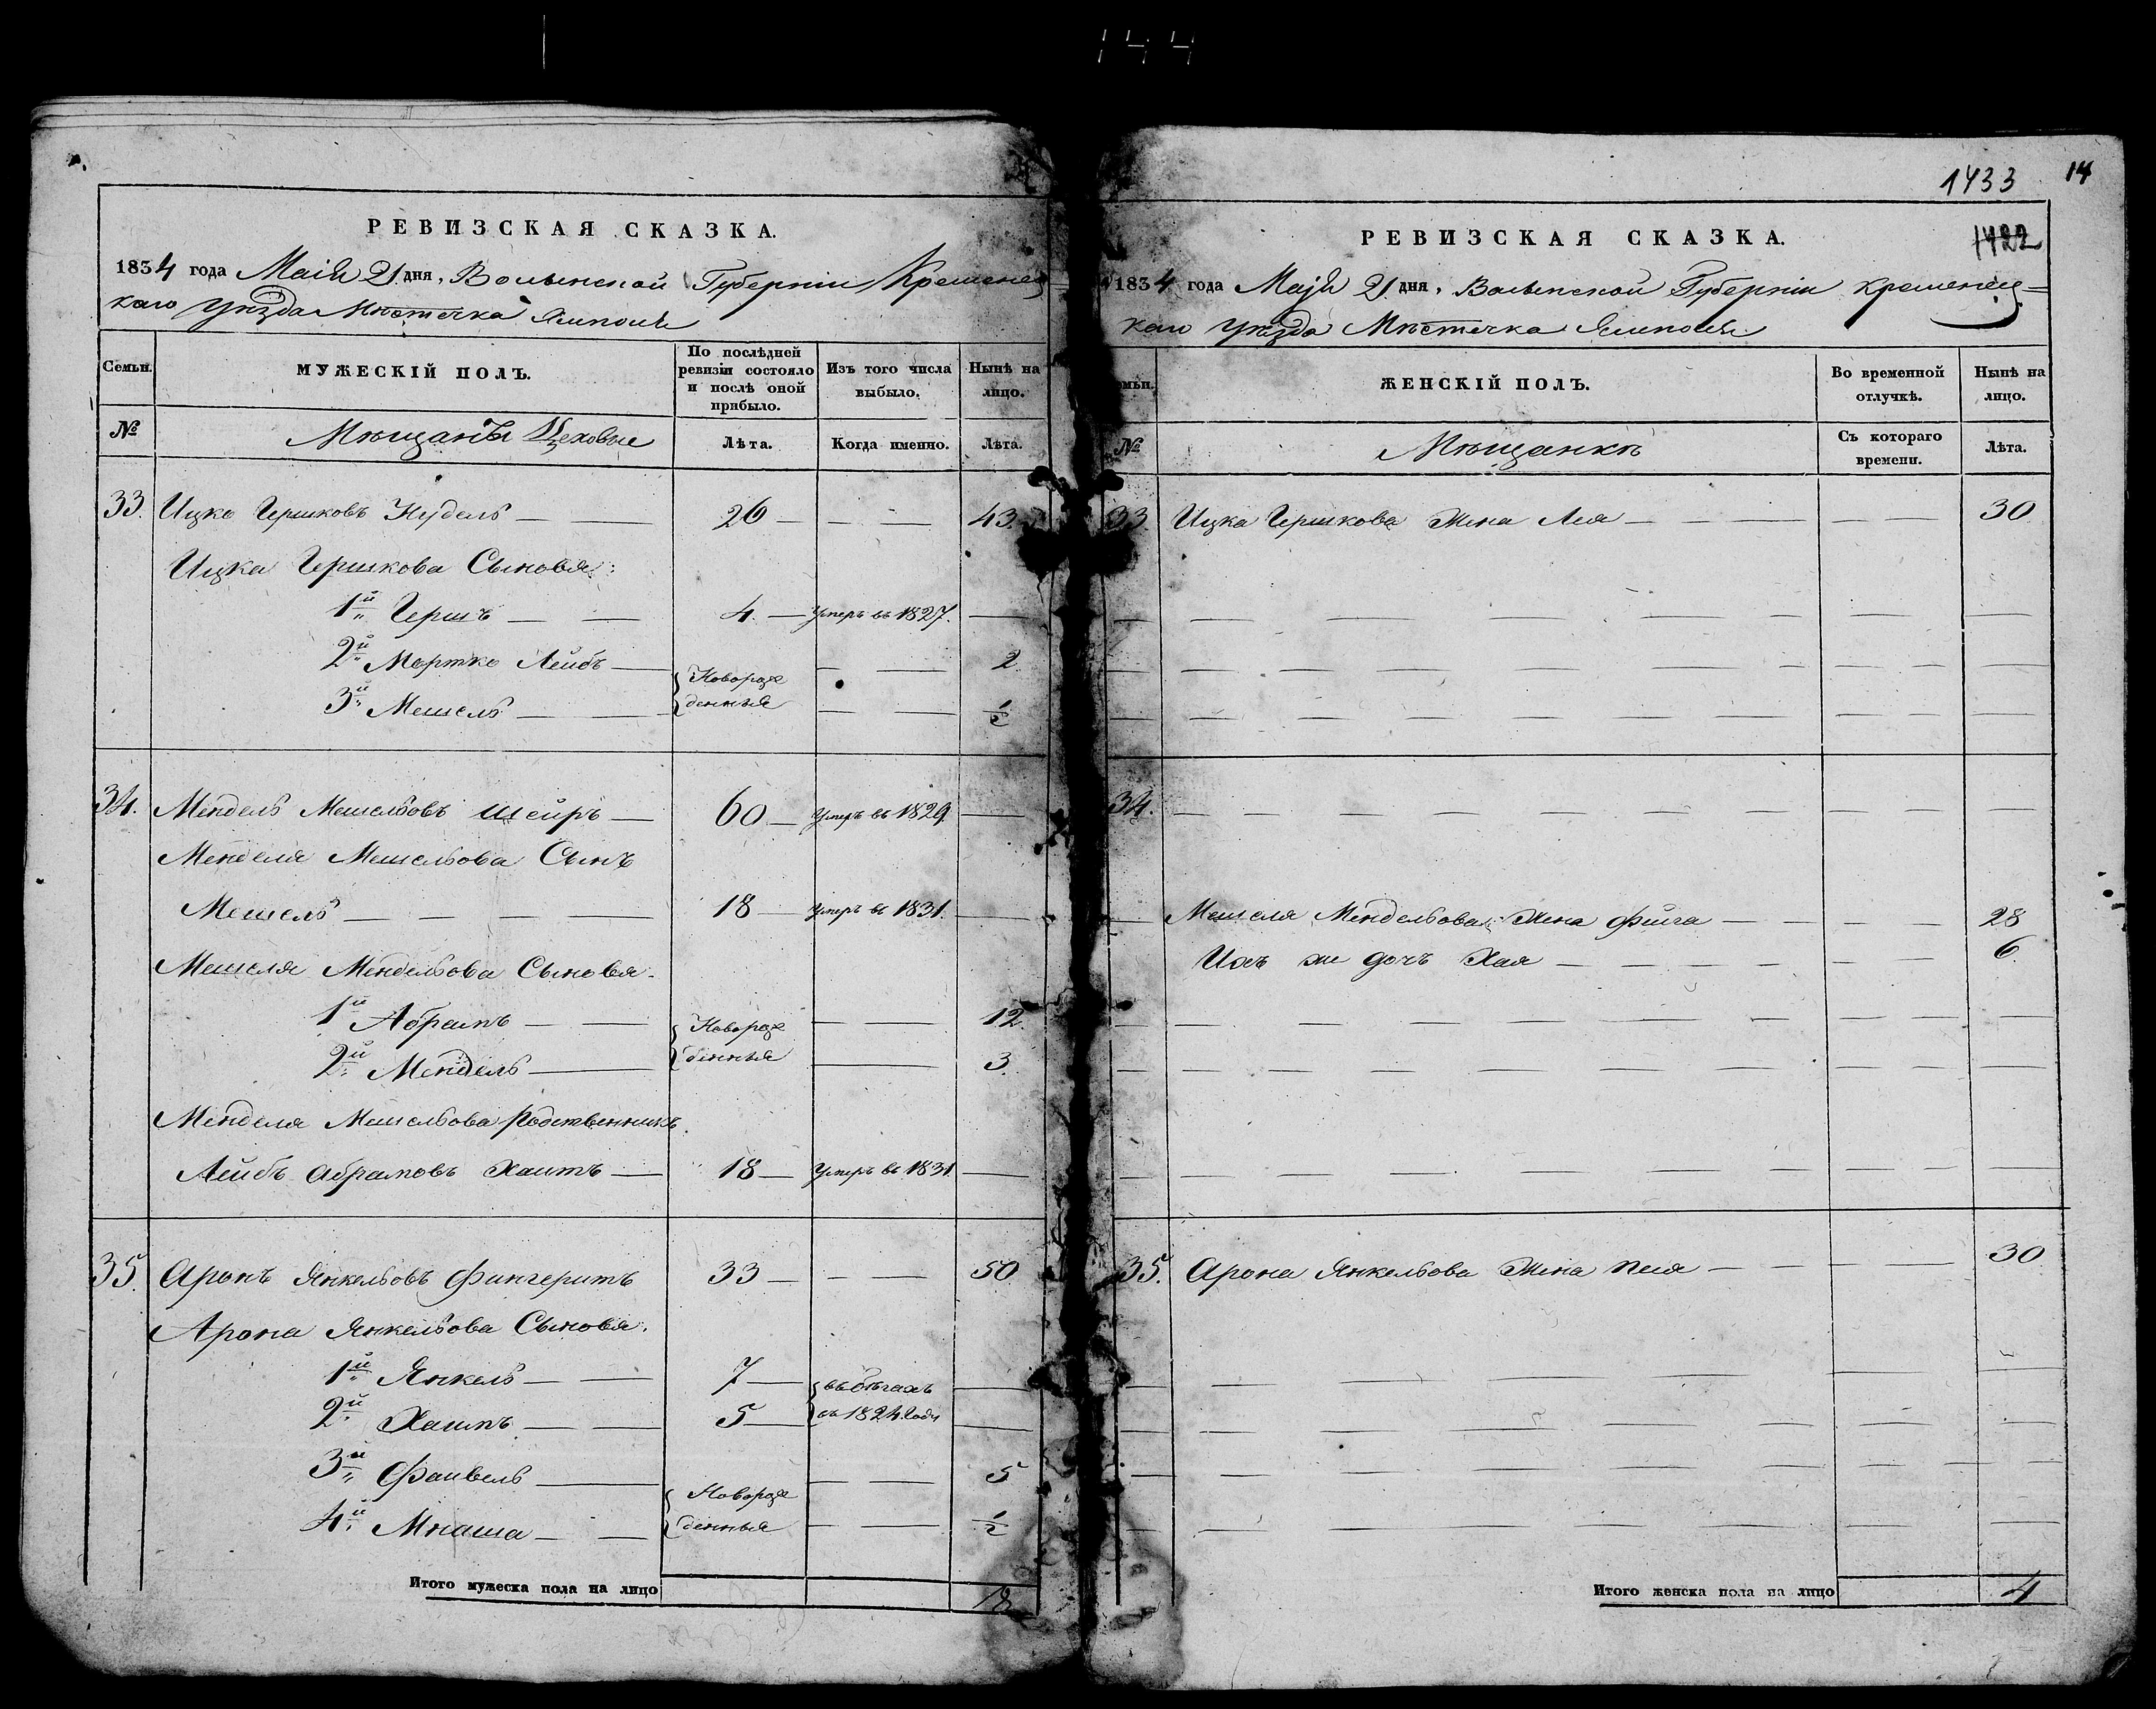 144
РЕВИЗСКАЯ СКАЗКА.
1834 года Маія 21 дня, Волынской Губерніи Кременец
каго Уѣзда Мѣстечка Ямполя
Семьи.
МУЖЕСКІЙ ПОЛЪ.
По послѣдней ревизіи состояло и послѣ оной прибыло.
Изъ того числа выбыло.
Нынѣ на лицо.
№
Мѣщаны Цеховые
Лѣта.
Когда именно.
Лѣта.
33. Ицко Гершковъ Нудель 26 43.
Ицка Гершкова Сыновья:
1й Гершъ 4. Умеръ въ 1827.
2й Мортко Лейбъ Новорож 2
3й Мешель денныя ½
34. Мендель Мешельовъ Шейръ 60 Умеръ въ 1829.
Менделя Мешельова Сынъ
Мешель 18 Умеръ въ 1831.
Мешеля Мендельова Сыновья.
1й Абрамъ Новорож 12
2й Мендель денныя 3.
Менделя Мешельова Родственникъ
Лейбъ Абрамовъ Хаитъ 18 Умеръ въ 1831
35. Аронъ Янкельовъ Фингеритъ 33 50
Арона Янкельова Сыновья.
1й Янкель 7 въ бѣгахъ
2й Хаимъ 5 съ 1824 года
3й Фаивель Новорож 5
4й Мнаша денныя ½
Итого мужеска пола на лицо 18
1433 14
1422
РЕВИЗСКАЯ СКАЗКА.
1834 года Маія 21 дня, Волынской Губерніи Кременец-
каго Уѣзда Мѣстечка Ямполя
ЖЕНСКІЙ ПОЛЪ.
Во временной отлучкѣ.
Нынѣ на лицо.
№
Мѣщанкъ
Съ котораго времени.
Лѣта.
33. Ицка Гершкова Жена Лея 30
34.
Мешеля Мендельова Жена Фейга 28
Ихъ же дочь Хая 6.
35. Арона Янкельова Жена Песя 30
Итого женска пола на лицо 4